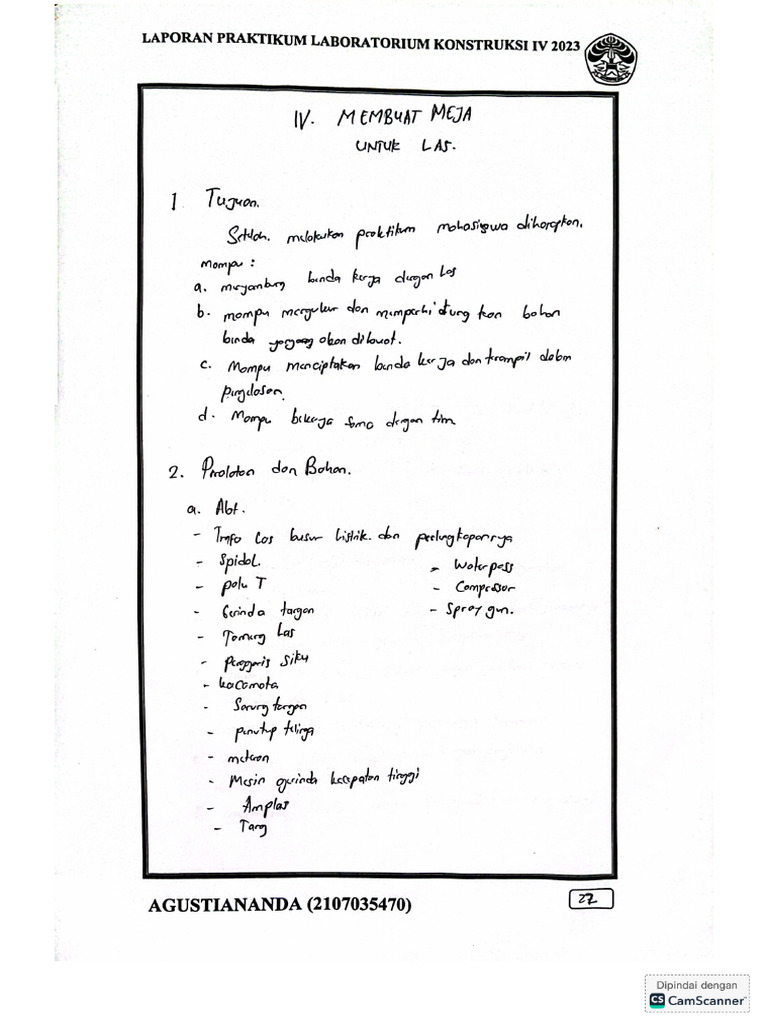 LAPORAN PRAKTIKUM LABORATORIUM KONSTRUKSI IV 2023
IV. MEMBUAT MEJA
UNTUK LAS.
1 Tujuan.
Setelah melakukan praktikum mahasiswa diharapkan,
mampu :
a. menyambung benda kerja dengan las
b. mampu mengukur dan memperhitungkan bahan
benda yang akan dibuat.
c. Mampu menciptakan benda kerja dan terampil dalam
pengelasan.
d. Mampu bekerja sama dengan tim
2. Peralatan dan Bahan.
a. Alat.
- Trafo Las busur listrik dan perlengkapannya
- Spidol.
- palu T
- Gerinda tangan
- Tameng Las
- Penggaris siku
- kacamata
- Sarung tangan
- penutup telinga
- meteran
- Mesin gerinda kecepatan tinggi
- Amplas
- Tang
- Waterpass
- Compressor
- Spray gun.
AGUSTIANANDA (2107035470)
22
Dipindai dengan
CS CamScanner